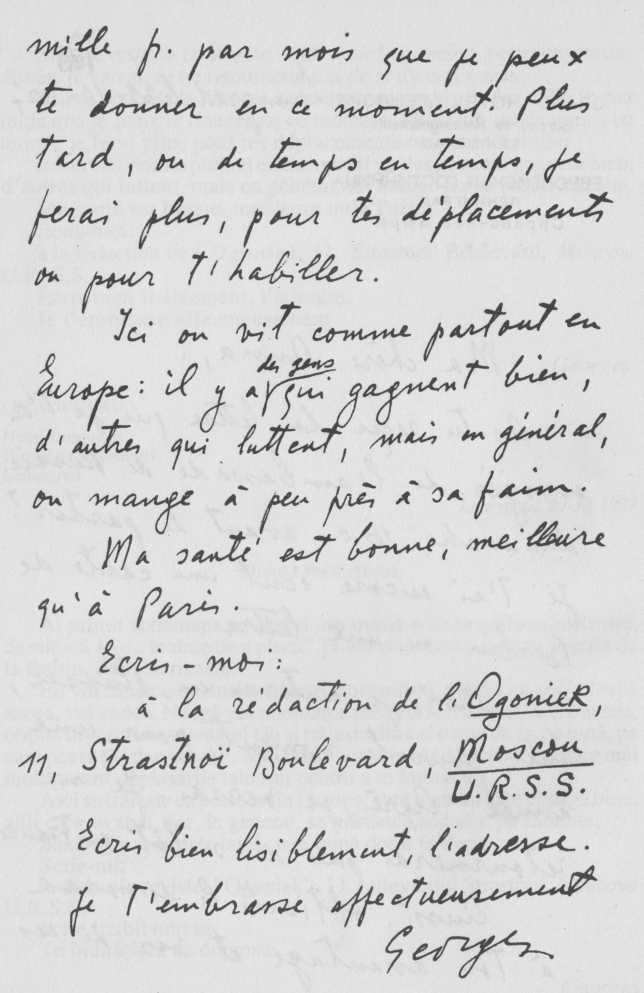 mille fr. par mois que je peux
te donner en ce moment. Plus
tard, ou de temps en temps, je
ferai plus, pour tes déplacements
ou pour t'habiller.
Ici on vit comme partout en
des gens
Europe: il y a qui gagnent bien,
d'autres qui luttent, mais en général,
on mange à peu près à sa faim.
Ma santé est bonne, meilleure
qu'à Paris.
Ecris-moi:
à la rédaction de l'Ogoniek,
11, Strastnoï Boulevard, Moscou
U.R.S.S.
Ecris bien lisiblement l'adresse.
Je t'embrasse affectueusement
Georges